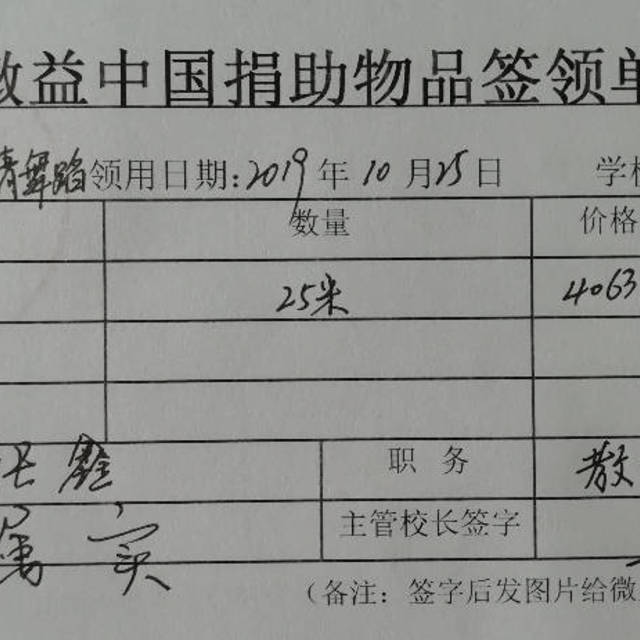 益中国捐助物品签领单
舞蹈领用日期:2019年10月25日 学校
数量 价格
25米 4063
张鑫 职务 教
属实 主管校长签字
(备注:签字后发图片给微